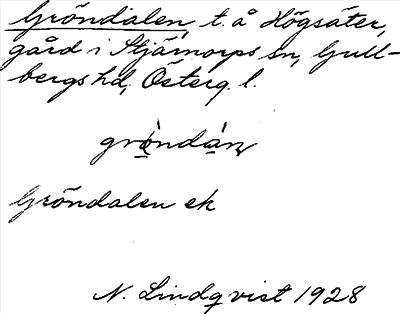 Gröndalen, t. å Högsäter,
gård i Stjärnorps sn, Gull-
bergs hd, Österg. l.
gröndán
Gröndalen ek
N. Lindqvist 1928